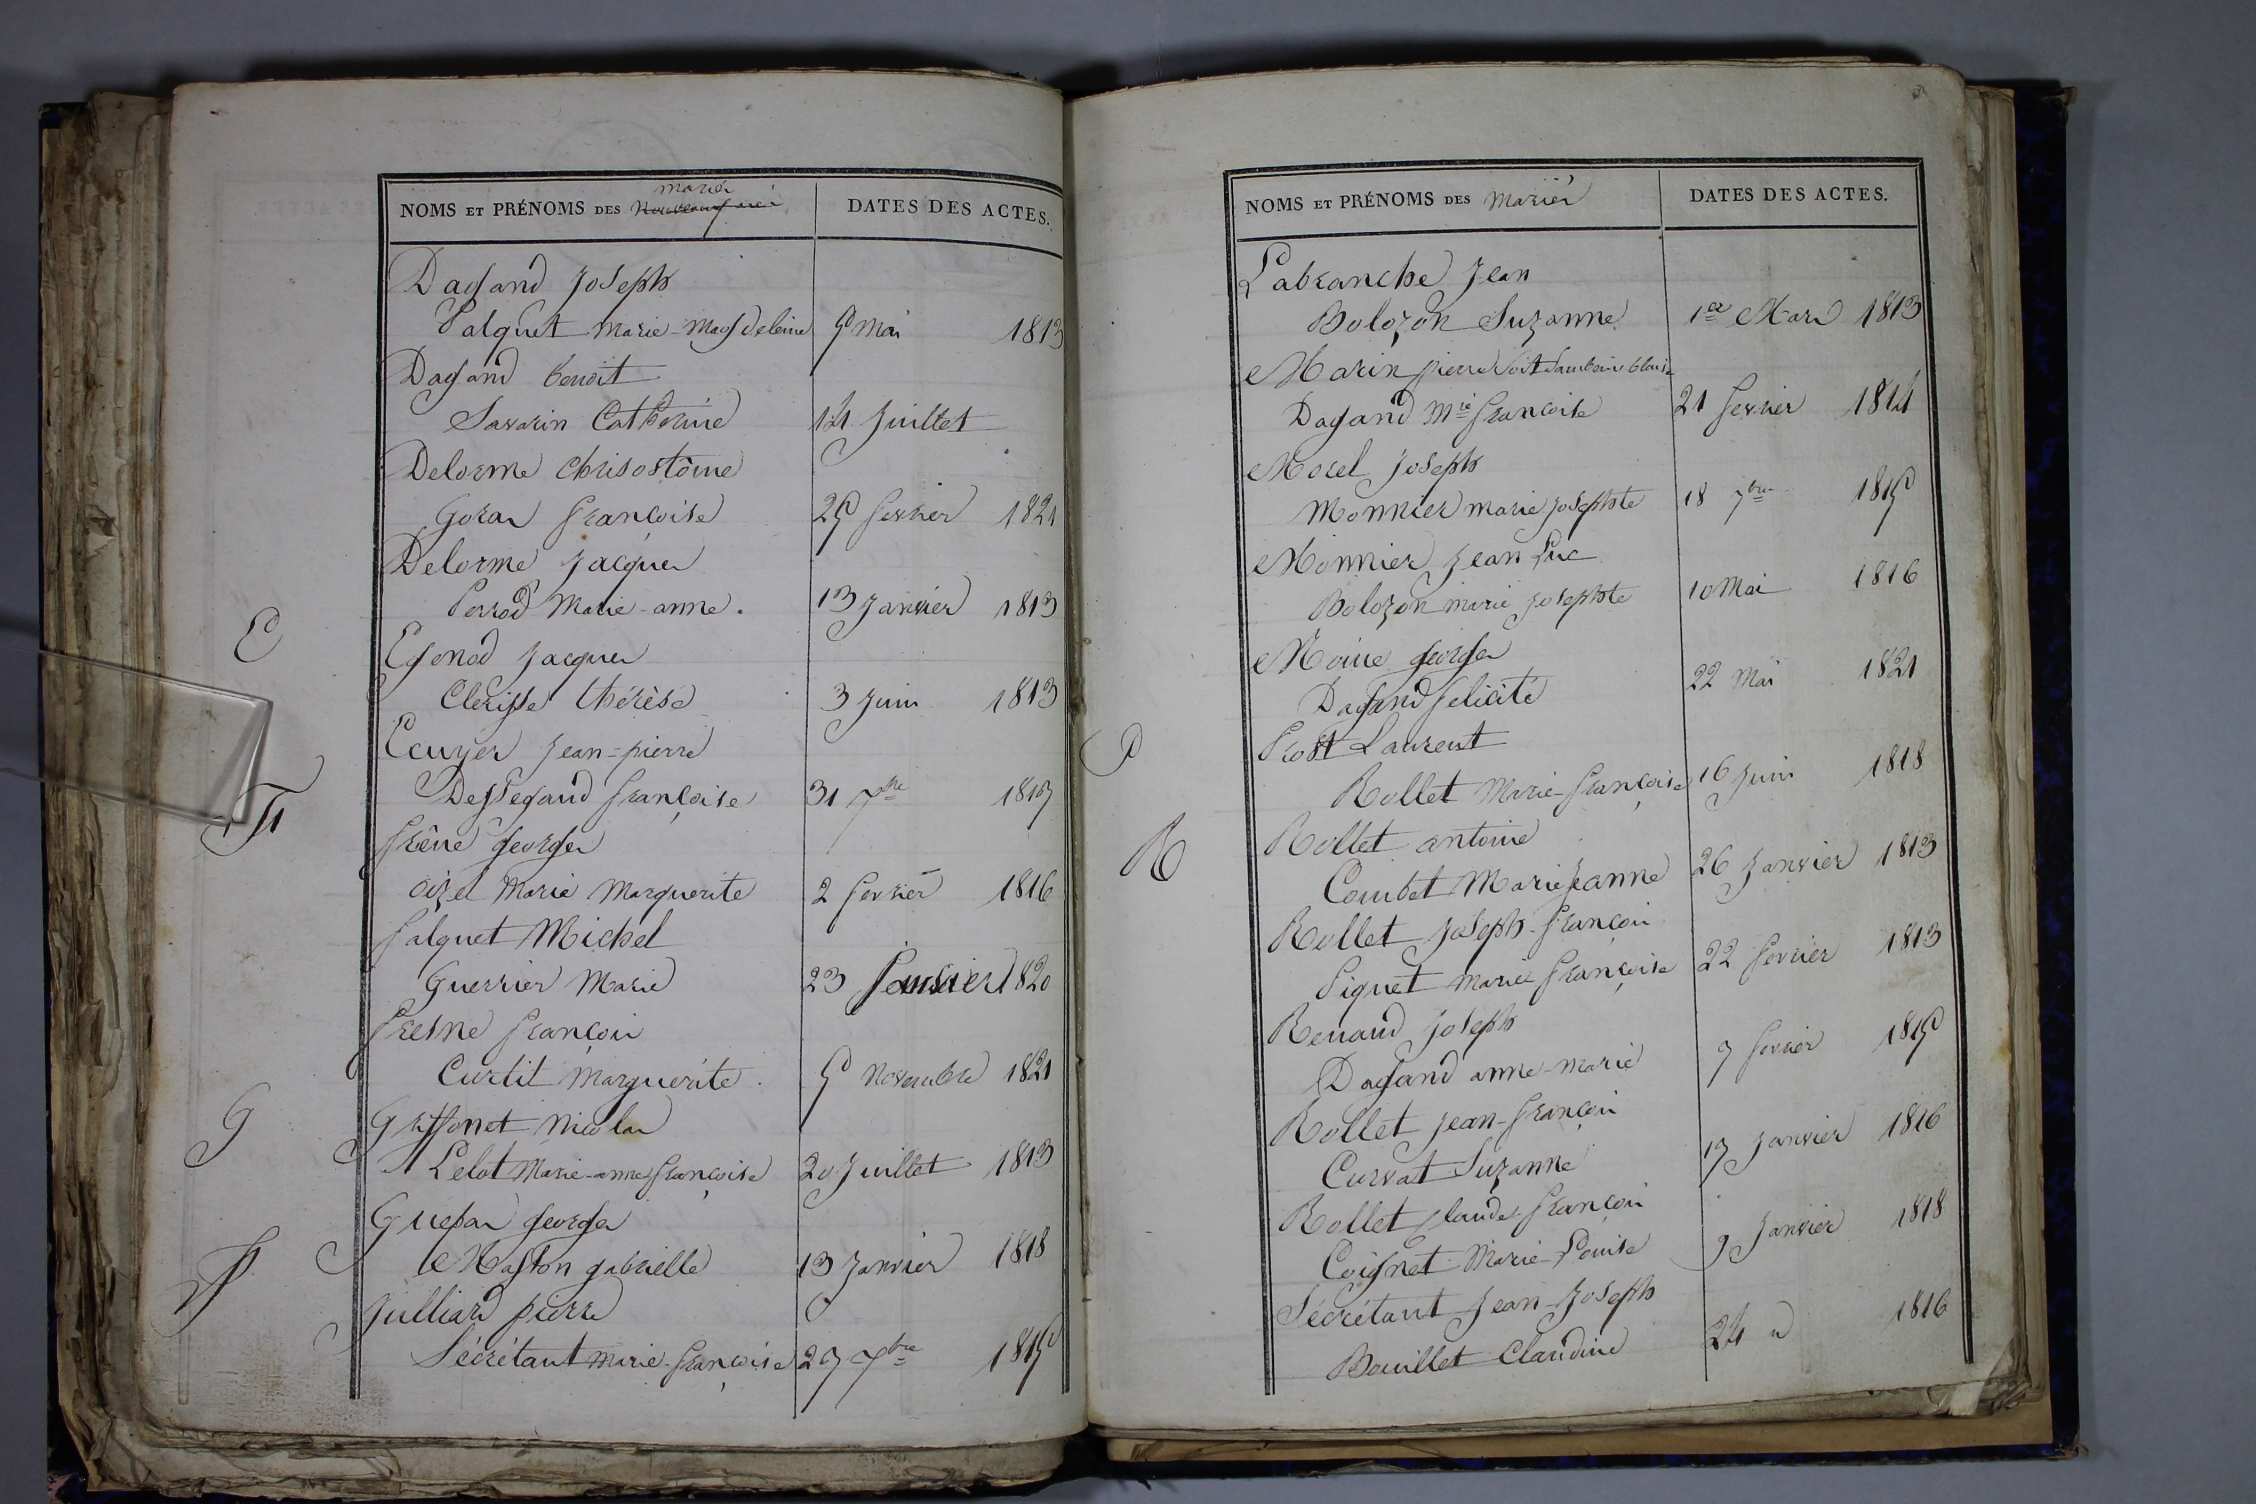 mariés
NOMS ET PRÉNOMS DES Nouveaux nés
DATES DES ACTES.
Dagand Joseph
Palquet Marie-Magdeleine 5 Mai 1813
Dagand benoit
Savarin Catherine 14 Juillet
Delorme Chrisostôme
Goras françoise 25 fevrier 1821
Delorme Jacques
Perrod Marie-anne. 13 Janvier 1813
E
Egenod Jacques
Clerisse thérèse 3 Juin 1813
Ecuyer Jean-pierre
Dessegaud françoise 31 7bre 1817
F
frêne georges
Marie Marguerite 2 fevrier 1816
falquet Michel
Guerrier Marie 23 Janvier 1820
fresne françois
Curtit Marguerite. 5 Novembre 1821
G
Griffonet Nicolas
Lelot Marie-anne françoise 20 Juillet 1813
Guepas georges
Maston gabrielle 13 Janvier 1818
J
Julliard pierre
Sécrétant marie-françoise 27 7bre 1815
NOMS ET PRÉNOMS DES Mariés
DATES DES ACTES.
Labranche Jean
Bolozon Suzanne 1er Mars 1813
Marin pierre
Dagand Mie françoise 21 fevrier 1814
Morel Joseph
Monnier marie Josephte 18 7bre 1815
Monnier Jean Luc
Bolozon marie Josephte 10 Mai 1816
Moine georges
Dagand felicité 22 Mai 1821
P
Prost Laurent
Rollet Marie-françoise 16 Juin 1818
R
Rollet antoine
Combet Marie Jeanne 26 Janvier 1813
Rollet Joseph-françois
Piquet Marie françoise 22 fevrier 1813
Renaud Joseph
Dagand anne-marie 7 fevrier 1815
Rollet Jean-françois
Curvat Suzanne 17 Janvier 1816
Rollet Claude françois
Coignet Marie-Louise 9 Janvier 1818
Sécrétant Jean-Joseph
Bouillet Claudine 24 " 1816